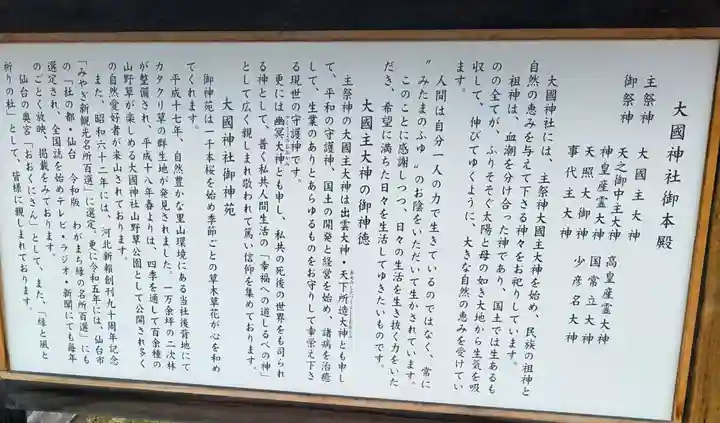 大國神社御本殿
主祭神　大國主大神
御祭神　天之御中主大神　高皇産霊大神
神皇産霊大神　国常立大神
天照大御神　少彦名大神
事代主大神
大國神社には、主祭神大國主大神を始め、民族の祖神と
自然の恵みを与えて下さる神々をお祀りしています。
祖神は、血潮を分け合った神であり、国土では生あるも
のの全てが、ふりそそぐ太陽と母の如き大地から生気を吸
収して、伸びてゆくように、大きな自然の恵みを受けてい
ます。
人間は自分一人の力で生きているのではなく、常に
〝みたまのふゆ〟のお陰をいただいて生かされています。
このことに感謝しつつ、日々の生活を生き抜く力をいた
だき、希望に満ちた日々を生活してゆきたいものです。
大國主大神の御神徳
主祭神の大國主大神は出雲大神・天下所造大神とも申し
て、平和の守護神、国土の開発と経営を始め、諸病を治癒
して、生業のありとあらゆるものをお守りして幸栄え下さ
る現世の守護神です。
更には幽冥大神とも申し、私共の死後の世界をも司られ
る神として、普く私共人間生活の「幸福への道しるべの神」
として広く親しまれ敬われて篤い信仰を集めております。
大國神社御神苑
御神苑は一千本桜を始め季節ごとの草木草花が心を和め
てくれます。
平成十七年、自然豊かな里山環境にある当社後背地にて
カタクリ草の群生地が発見されました。一万余坪の二次林
が整備され、平成十八年春よりは、四季を通して百余種の
山野草が楽しめる大國神社山野草公園として公開され多く
の自然愛好者が来山されております。
また、昭和六十二年には、河北新報創刊九十周年記念
「みやぎ新観光名所百選」に選定、更に令和五年には、仙台市
の「杜の都・仙台　令和版　わがまち緑の名所百選」にも
選定され、全国誌を始めテレビ・ラジオ・新聞にても毎年
のごとく放映、掲載をみております。
仙台の奥宮「おおくにさん」として、また、「緑と風と
祈りの杜」として、皆様に親しまれております。